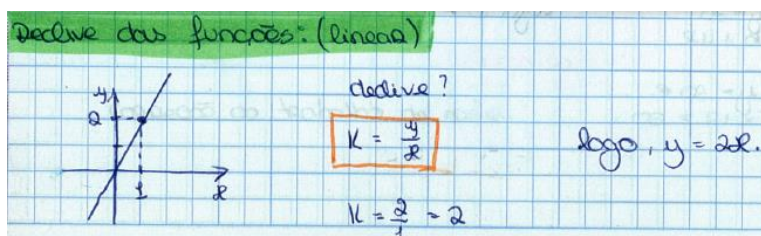 Declive das funções: (linear)
y
2
1
x
declive?
K = y/x
K = 2/1 = 2
logo, y = 2x.